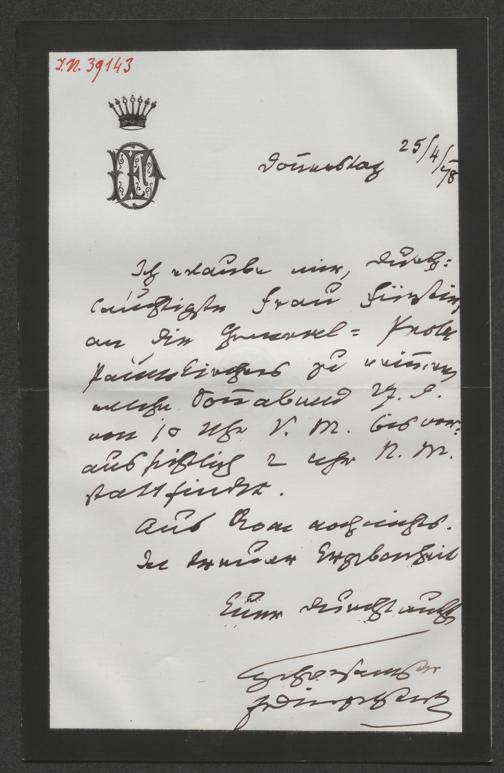 I.N. 39143
Donnerstag 25/4/78
Ich erlaube mir, durch-
lauchtigste Frau Fürstin,
an die General-Probe
zu erinnern
welche Sonnabend 27. d.
von 10 Uhr V. M. bis vor-
aussichtlich 2 Uhr N. M.
stattfindet.
Aus Rom noch nichts.
In treuer Ergebenheit
Euer Durchlaucht
gehorsamster